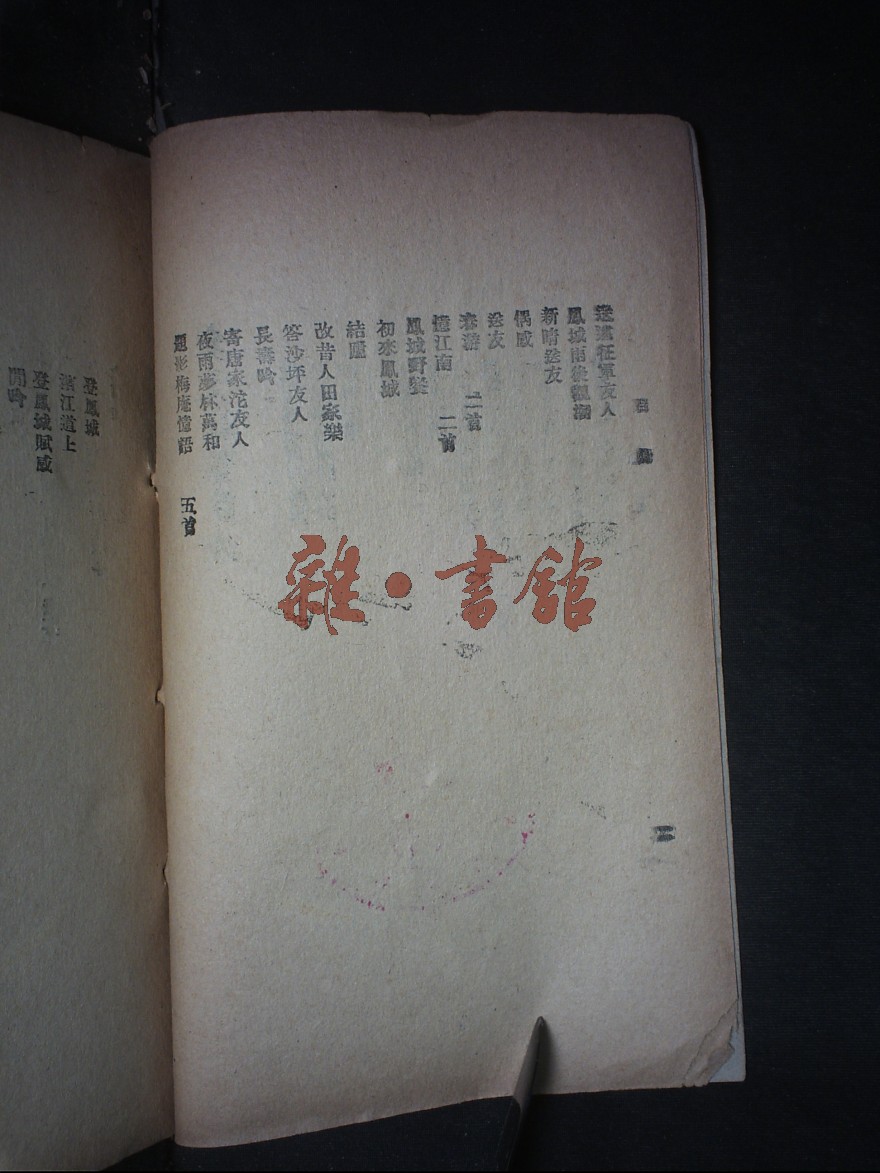 目錄
送遠征軍友人
鳳城雨後觀瀾
新晴送友
偶感
送友
春游 二首
憶江南 二首
鳳城野餐
初來鳳城
結廬
改昔人田家樂
答沙坪友人
長壽吟
寄唐家沱友人
夜雨夢林萬和
題影梅庵憶語 五首
二
登鳳城
江道上
登鳳城賦感
閒吟
雜·書館